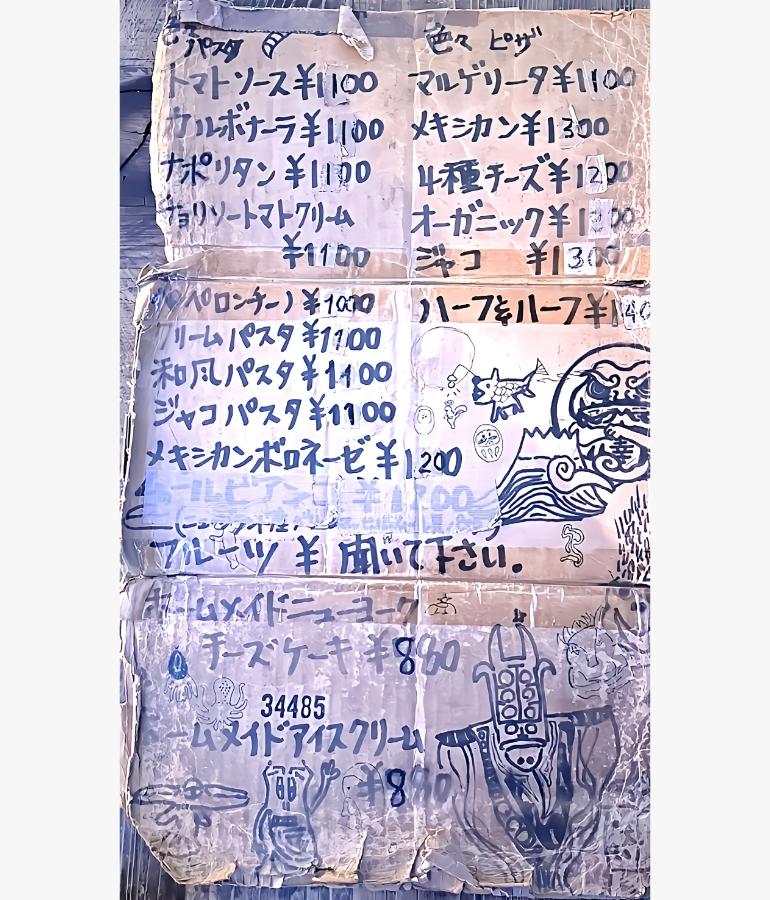 色々 パスタ
トマトソース ¥1100
カルボナーラ ¥1100
ナポリタン ¥1100
チョリソートマトクリーム
¥1100
ペロンチーノ ¥1000
クリームパスタ ¥1100
和風パスタ ¥1100
ジャコパスタ ¥1100
メキシカンボロネーゼ ¥1200
フルーツ ¥ 聞いて下さい。
色々 ピザ
マルゲリータ ¥1100
メキシカン ¥1300
4種チーズ ¥1200
オーガニック
ジャコ ¥1300
ハーフ&ハーフ
幸
ホームメイドニューヨーク
チーズケーキ ¥880
34485
ームメイドアイスクリーム
¥880